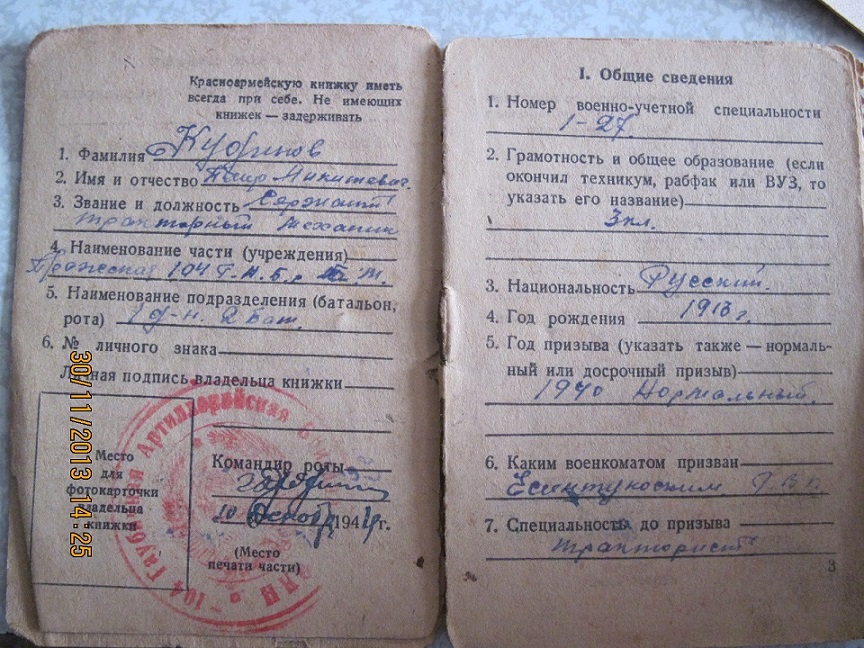 Красноармейскую книжку иметь
всегда при себе. Не имеющих
книжек — задерживать
1. Фамилия Кубинов
2. Имя и отчество Никитович
3. Звание и должность Сержант
тракторный механик
4. Наименование части (учреждения)
Пражская 104 Г.А.Б.р
5. Наименование подразделения (батальон,
рота) 1 д-н. 2 бат.
6. № личного знака
Личная подпись владельца книжки
Место
для
фотокарточки
владельца
книжки
Командир роты
10 1944 г.
(Место
печати части)
104 Гаубичная Артиллерийская
30/11/2013 14:25
I. Общие сведения
1. Номер военно-учетной специальности
1-27
2. Грамотность и общее образование (если
окончил техникум, рабфак или ВУЗ, то
указать его название)
3 кл.
3. Национальность Русский.
4. Год рождения 1913 г.
5. Год призыва (указать также — нормаль-
ный или досрочный призыв)
1940 Нормальный.
6. Каким военкоматом призван
Есинтукоским Р.В.К.
7. Специальность до призыва
тракторист
3